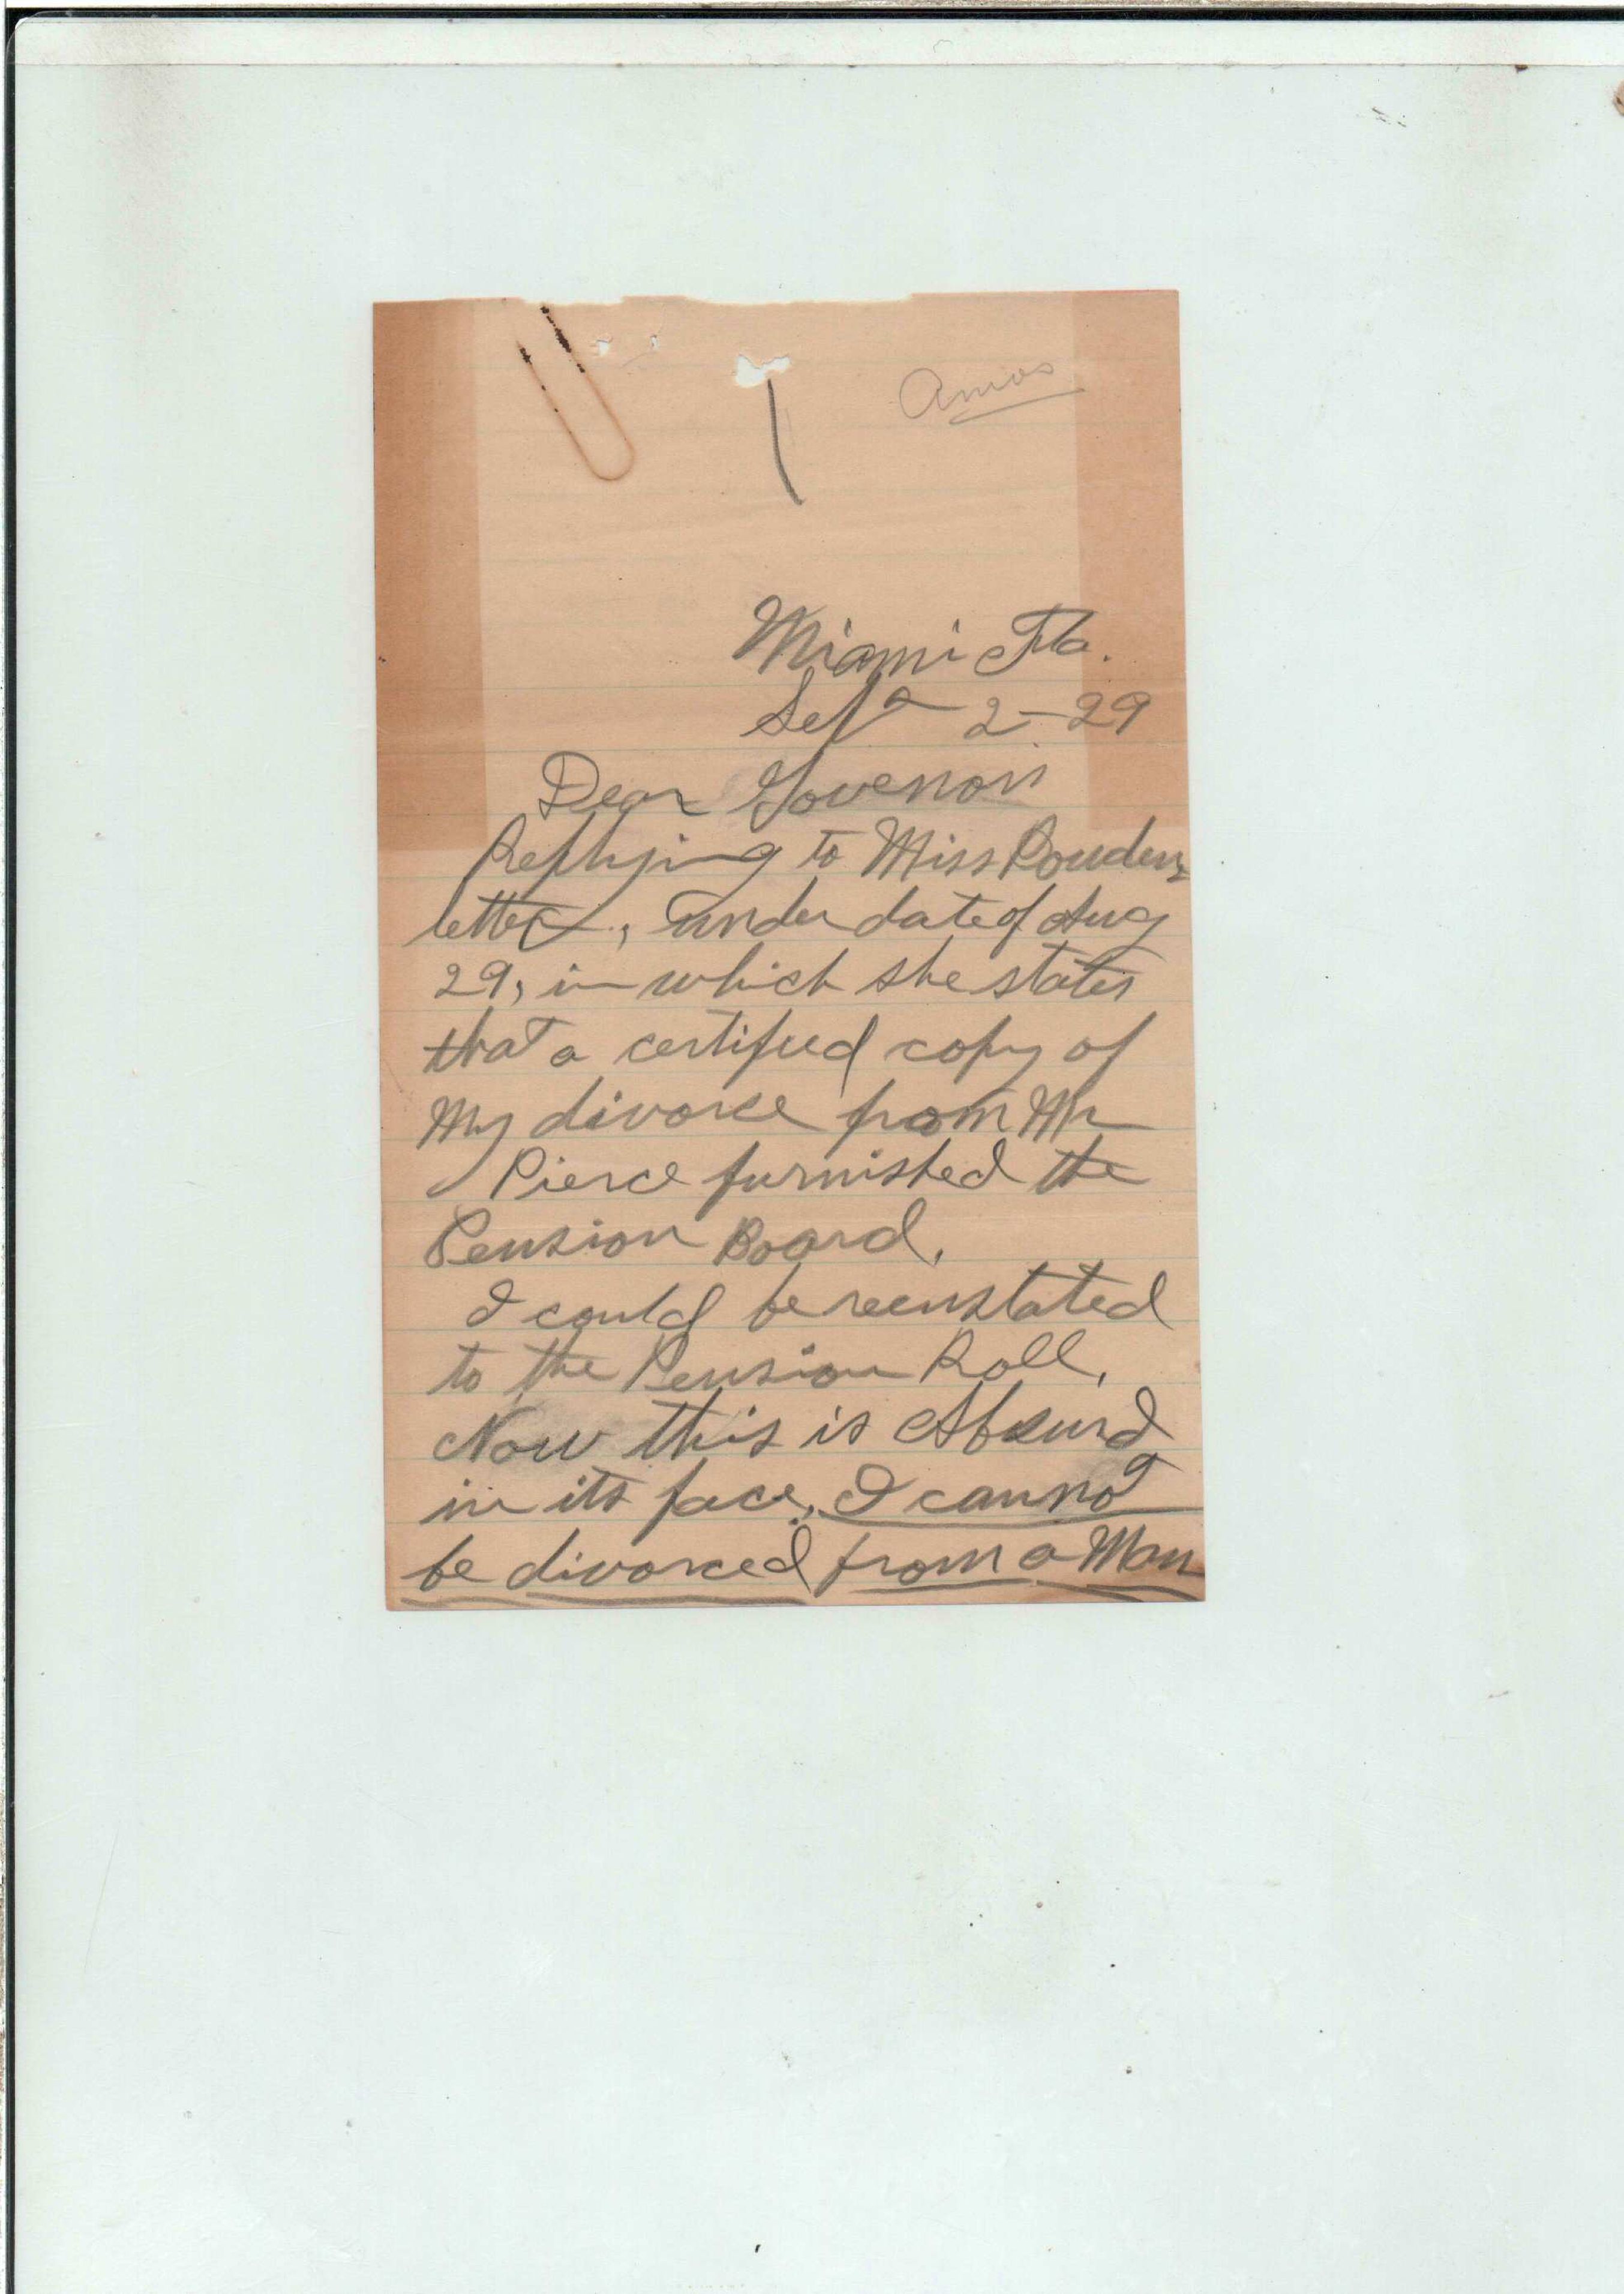 Amos
Miami Fla.
Sept 2-29
Dear Govenor
Replying to Miss
letter, under date of Aug
29, in which she states
that a certified copy of
My divorce from Mr
Pierce furnished the
Pension Board.
I could be reenstated
to the Pension Roll,
Now this is Absurd
in its face, I cannot
be divorced from a Man